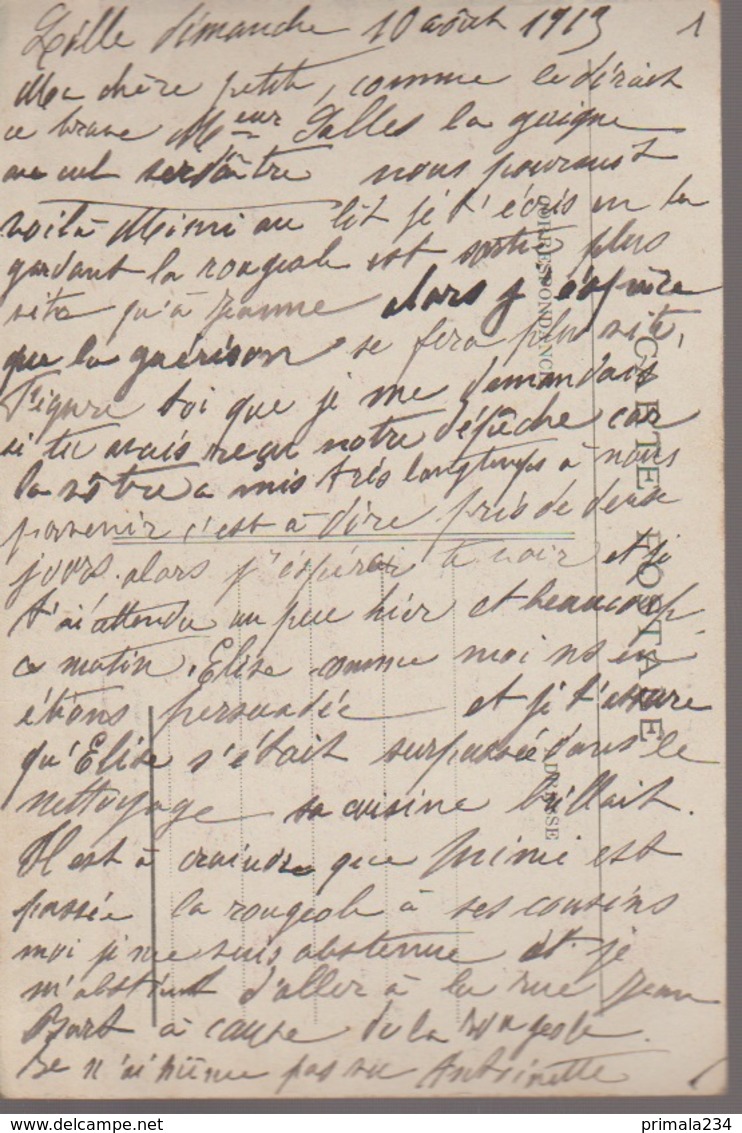 Lille dimanche 10 août 1913 1
Ma chère petite, comme le dirait
ce brave Meur Salles la guigne
au cul verdâtre nous poursuit
voilà Mimi au lit je t'écris en la
gardant la rougeole est sortie plus
vite qu'à Jeanne alors j'espère
que la guérison se fera plus vite,
Figure toi que je me demandais
si tu avais reçu notre dépêche car
la vôtre a mis très longtemps à nous
parvenir c'est à dire près de deux
jours. alors j'espérais te voir et je
t'ai attendu un peu hier et beaucoup
ce matin. Elise comme moi nous en
étions persuadée et je t'assure
qu'Elise s'était surpassée dans le
nettoyage sa cuisine brillait.
Il est à craindre que Mimi est
passée la rougeole à ses cousins
moi je me suis abstenue et je
m'abstient d'aller à la rue Jean
Bart à cause de la rougeole.
Je n'ai même pas vu Antoinette
CARTE POSTALE
CORRESPONDANCE
ADRESSE
primala234